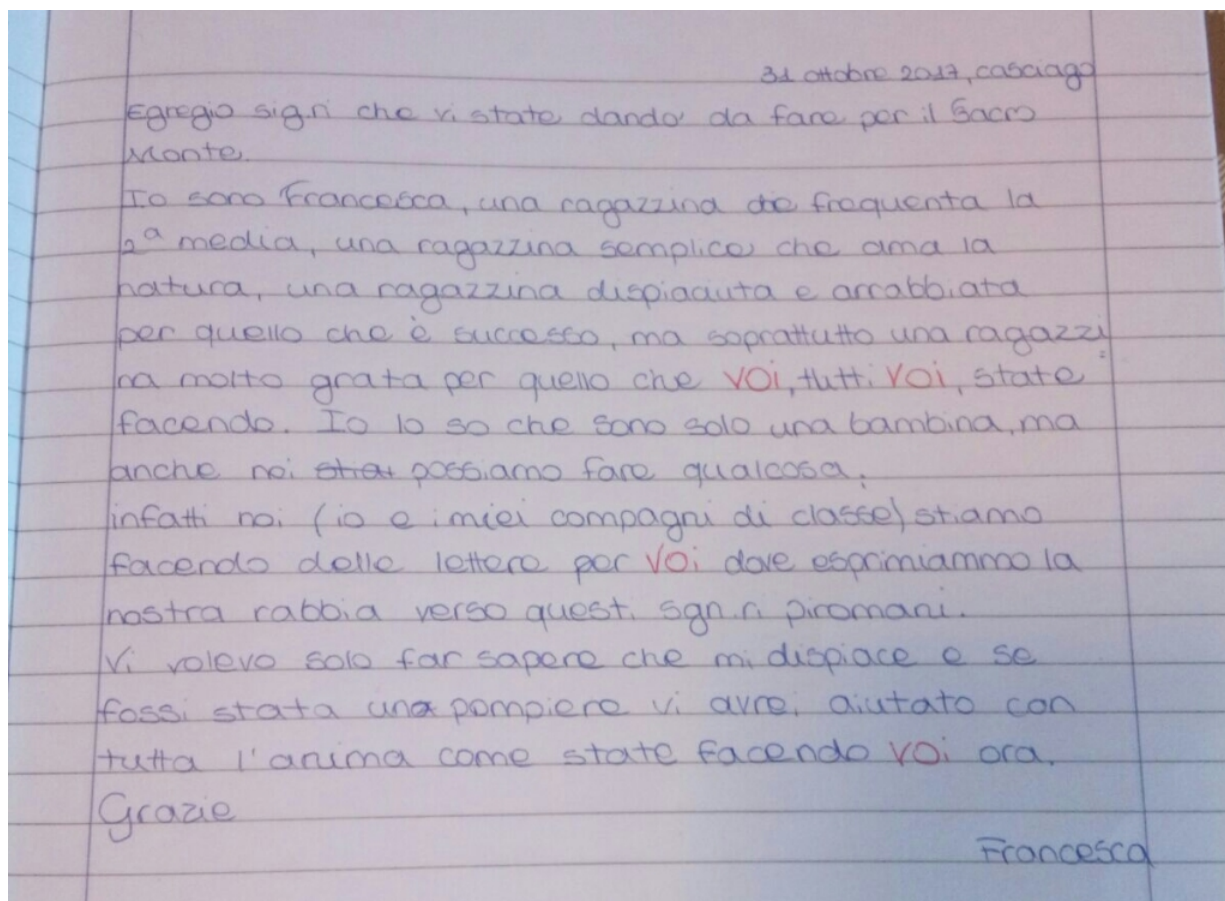 31 ottobre 2017, casciago
Egregio sig.ri che vi state dando da fare per il Sacro
Monte.
Io sono Francesca, una ragazzina che frequenta la
2ª media, una ragazzina semplice che ama la
natura, una ragazzina dispiaciuta e arrabbiata
per quello che è successo, ma soprattutto una ragazzi
na molto grata per quello che voi, tutti voi, state
facendo. Io lo so che sono solo una bambina, ma
anche noi possiamo fare qualcosa;
infatti noi (io e i miei compagni di classe) stiamo
facendo delle lettere per voi dove esprimiammo la
nostra rabbia verso questi sgn.ri piromani.
Vi volevo solo far sapere che mi dispiace e se
fossi stata una pompiere vi avrei aiutato con
tutta l'anima come state facendo voi ora.
Grazie
Francesca